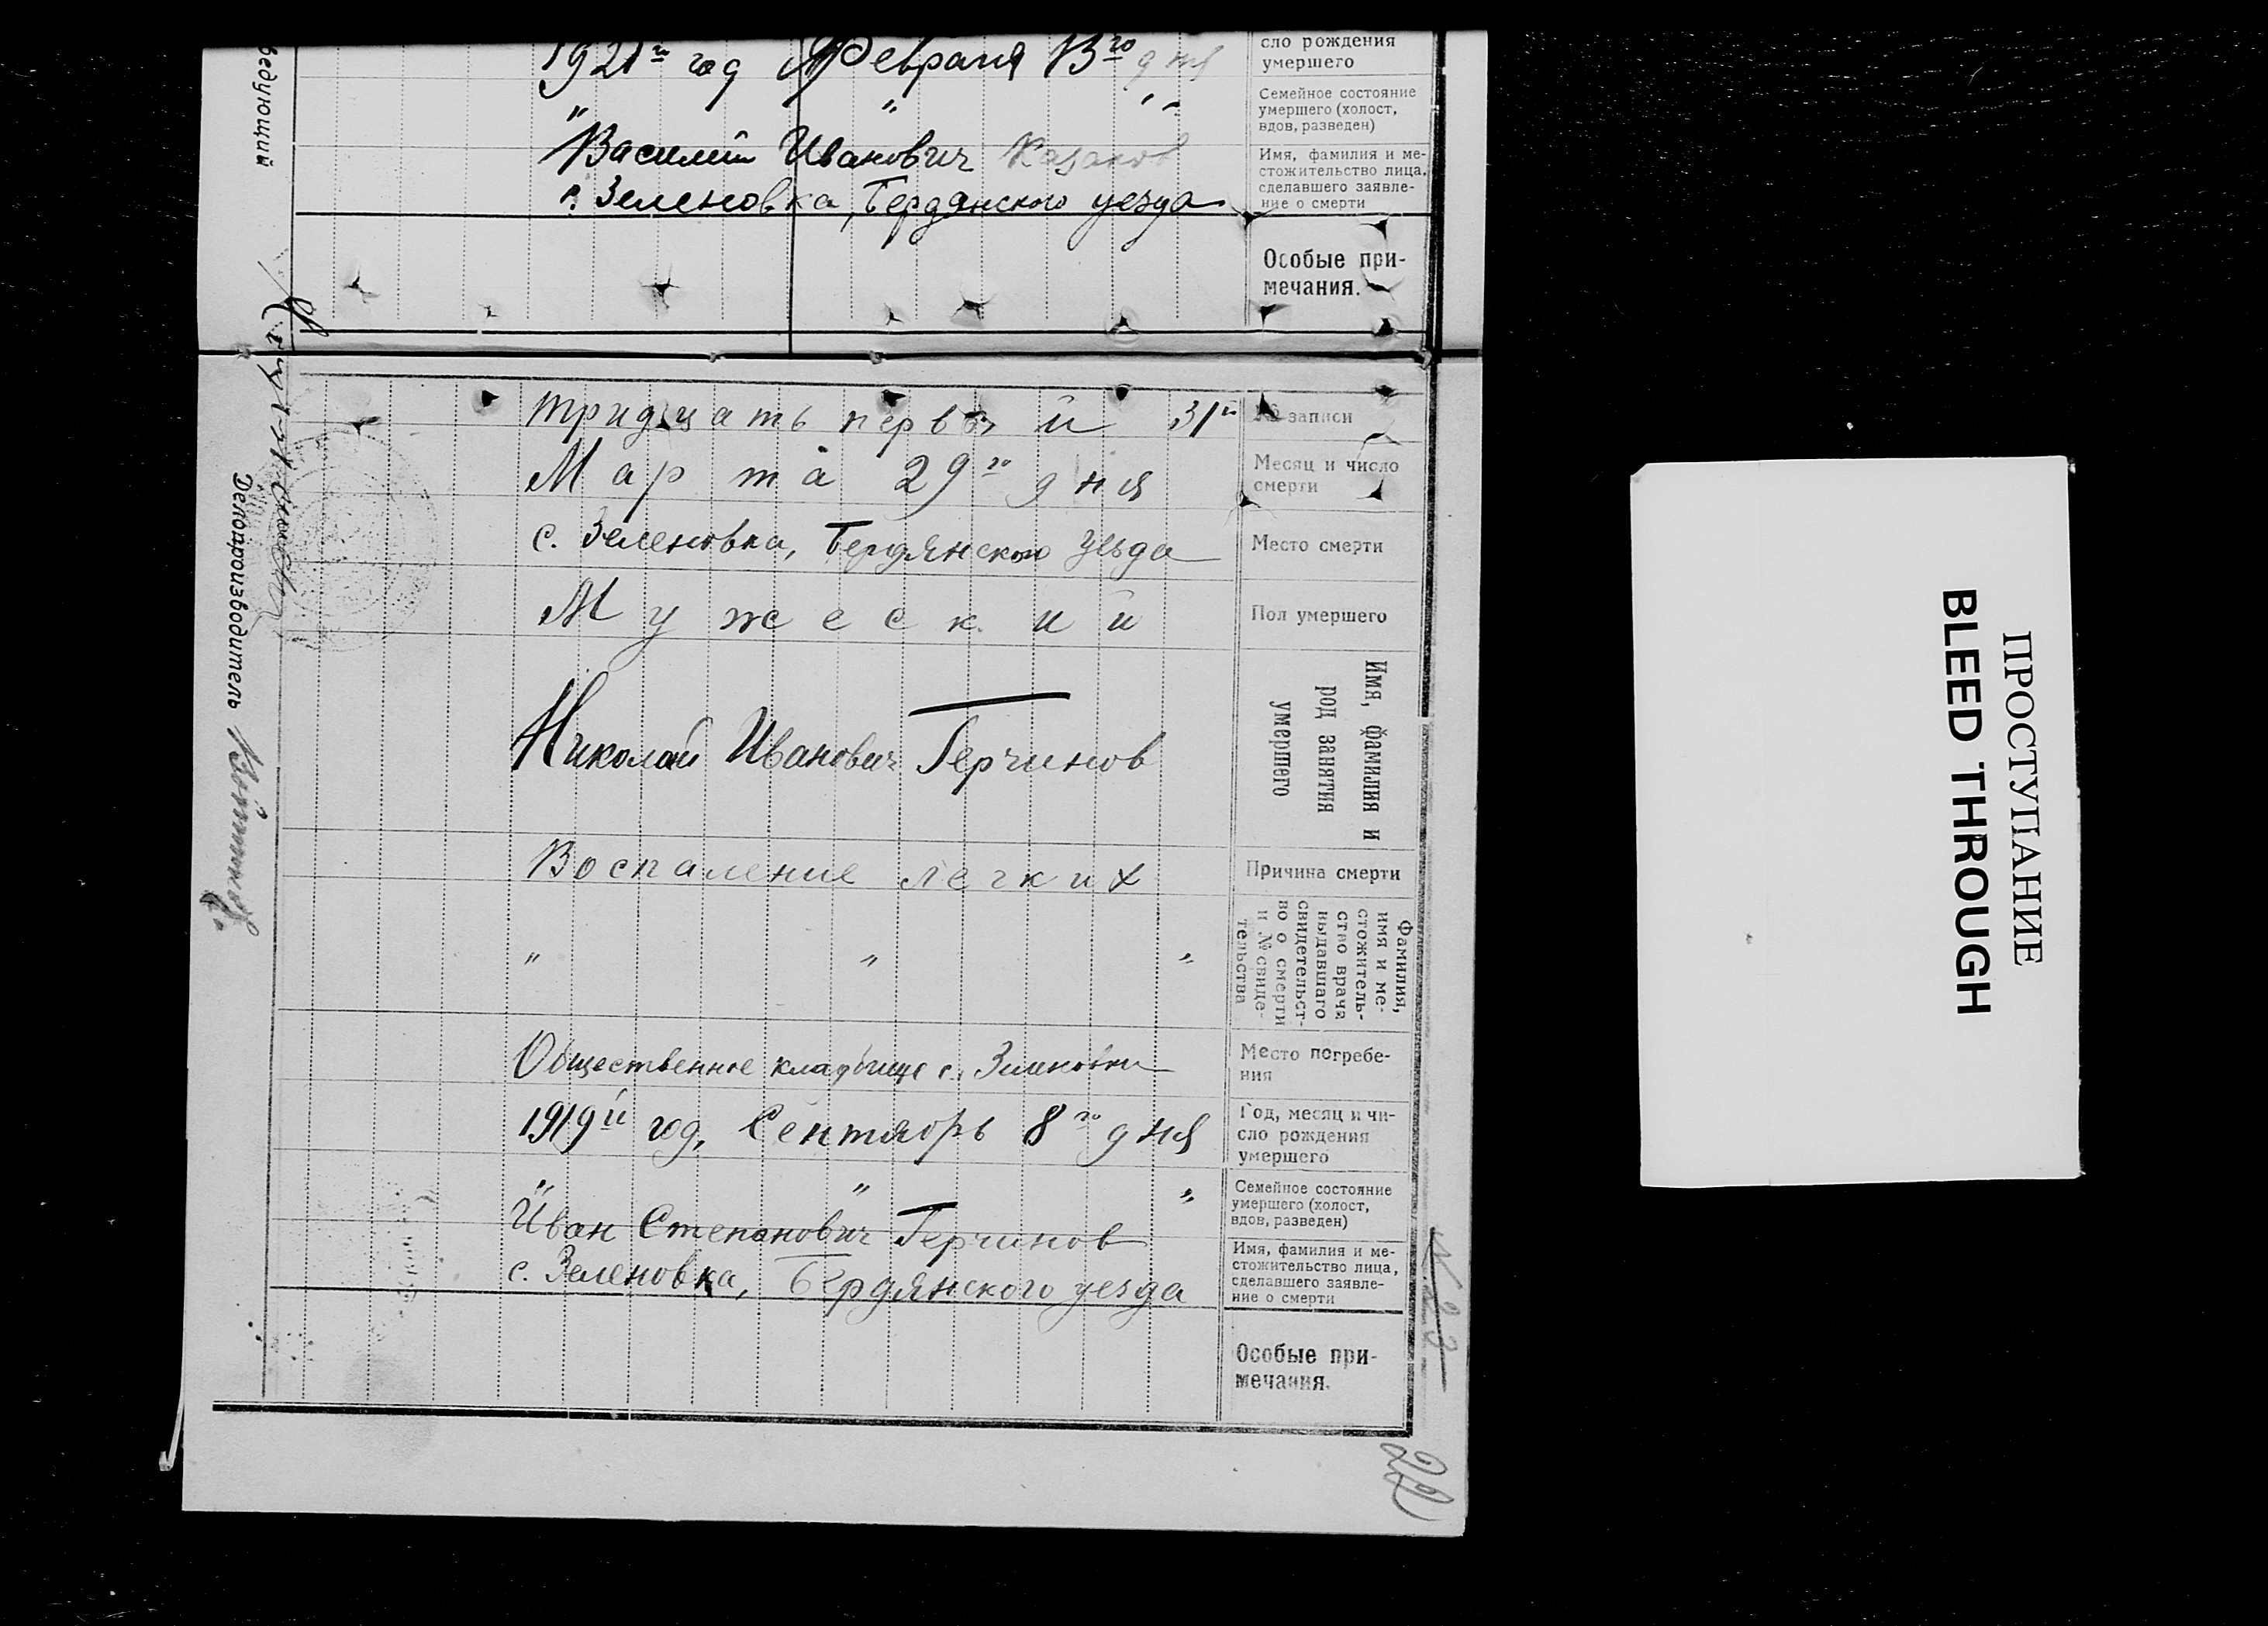 1921й год Февраля 13го дня
сло рождения
умершего
" " "
Семейное состояние
умершего (холост,
вдов, разведен)
Василий Иванович Казаков
с. Зеленовка, Бердянского уезда
Имя, фамилия и ме-
стожительство лица,
сделавшего заявле-
ние о смерти
Особые при-
мечания.
тридцать первый 31й
№ записи
Марта 29го дня
Месяц и число
смерти
с. Зеленовка, Бердянского уезда
Место смерти
Мужеский
Пол умершего
Николай Иванович Герчинов
Имя, фамилия и
род занятия
умершего
Воспаление легких
Причина смерти
" " "
Фамилия,
имя и ме-
стожитель-
ство врача
выдавшего
свидетельст-
во о смерти
и № свиде-
тельства
Общественное кладбище с. Зеленовки
Место погребе-
ния
1919й год, Сентябрь 8го дня
Год, месяц и чи-
сло рождения
умершего
" " "
Семейное состояние
умершего (холост,
вдов, разведен)
Иван Степанович Герчинов
с. Зеленовка, Бердянского уезда
Имя, фамилия и ме-
стожительство лица,
сделавшего заявле-
ние о смерти
Особые при-
мечания.
ведующий
Делопроизводитель
ПРОСТУПАНИЕ
BLEED THROUGH